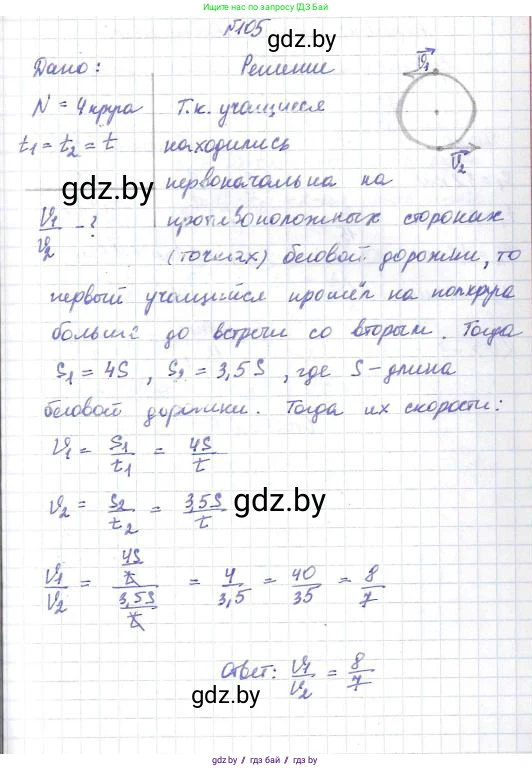 Ищите нас по запросу ГДЗ Бай
№105
gdz.by
Дано: Решение
N = 4 круга
t₁ = t₂ = t
v₁/v₂ - ?
Т.к. учащиеся
находились
первоначальна на
gdz.by
противоположных сторонах
(точках) беговой дорожки, то
первый учащийся прошёл на полкруга
больше до встречи со вторым. Тогда
S₁ = 4S, S₂ = 3,5S, где S - длина
беговой дорожки. Тогда их скорости:
v₁ = S₁/t₁ = 4S/t
v₂ = S₂/t₂ = 3,5S/t
gdz.by
v₁/v₂ = (4S/t)/(3,5S/t) = 4/3,5 = 40/35 = 8/7
Ответ: v₁/v₂ = 8/7
gdz.by
v₁
v₂
gdz.by / гдз бай / gdz by